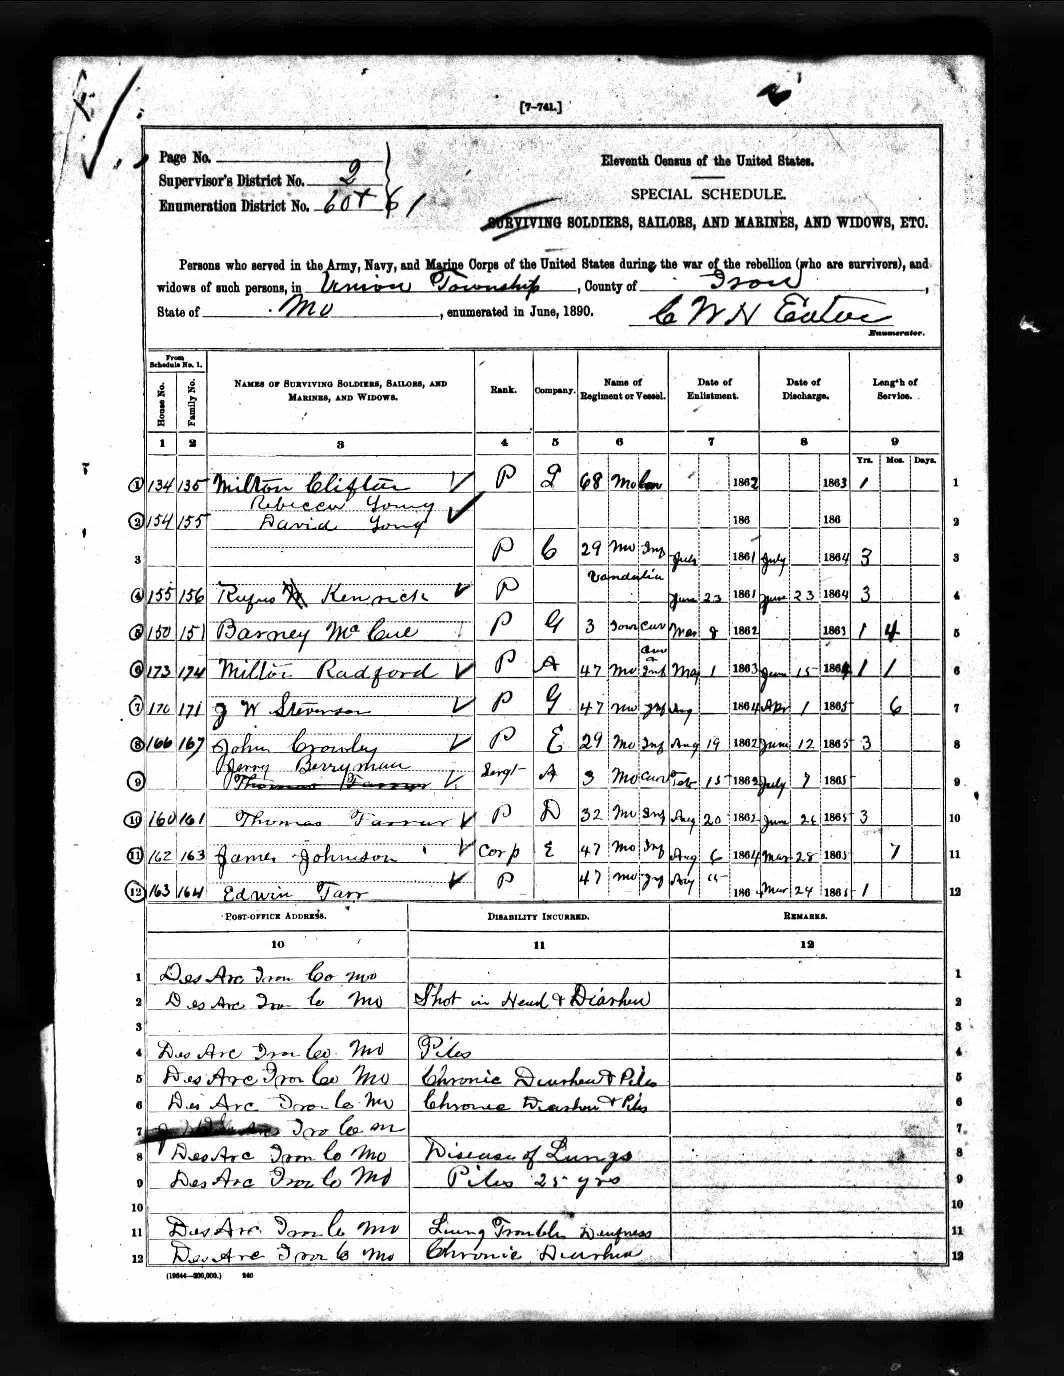 [7-741.]
Page No.
Supervisor's District No. 2
Enumeration District No. 60 + 61
Eleventh Census of the United States.
SPECIAL SCHEDULE.
SURVIVING SOLDIERS, SAILORS, AND MARINES, AND WIDOWS, ETC.
Persons who served in the Army, Navy, and Marine Corps of the United States during the war of the rebellion (who are survivors), and
widows of such persons, in Union Township, County of Iron,
State of Mo, enumerated in June, 1890. C W H Eaton
Enumerator.
From Schedule No. 1.
House No. Family No. NAMES OF SURVIVING SOLDIERS, SAILORS, AND MARINES, AND WIDOWS. Rank. Company. Name of Regiment or Vessel. Date of Enlistment. Date of Discharge. Length of Service.
1 2 3 4 5 6 7 8 9
Yrs. Mos. Days.
1 134 135 Milton Clifton P 68 Mo 1862 1863 1 1
Rebecca Young
2 154 155 David Young 186 186 2
3 P C 29 Mo Inf July 1861 July 1864 3 3
Vandalia
4 155 156 Rufus Kenrick P June 23 1861 June 23 1864 3 4
5 150 151 Barney McCue P G 3 Iowa Cav Mar 8 1862 1863 1 4 5
6 173 174 Milton Radford P A 47 Mo Inf May 1 1863 June 15 1864 1 1 6
7 170 171 J W Stevenson P G 47 Mo Inf Aug 1864 Apr 1 1865 6 7
8 166 167 John Crowley P E 29 Mo Inf Aug 19 1862 June 12 1865 3 8
Jerry Berryman
9 Thomas Farrar Sergt A 3 Mo Cav Feb 15 1862 July 7 1865 9
10 160 161 Thomas Farrar P D 32 Mo Inf Aug 20 1862 June 26 1865 3 10
11 162 163 James Johnson Corp E 47 Mo Inf Aug 6 1864 Mar 28 1865 7 11
12 163 164 Edwin Tarr P 47 Mo Inf Aug 186 Mar 24 1865 1 12
POST-OFFICE ADDRESS. DISABILITY INCURRED. REMARKS.
10 11 12
1 Des Arc Iron Co Mo 1
2 Des Arc Iron Co Mo Shot in Head & Diarhea 2
3 3
4 Des Arc Iron Co. Mo Piles 4
5 Des Arc Iron Co Mo Chronic Diarhea & Piles 5
6 Des Arc Iron Co Mo Chronic Diarhea & Piles 6
7 Iro Co m 7
8 Des Arc Iron Co Mo Disease of Lungs 8
9 Des Arc Iron Co Mo Piles 25 yrs 9
10 10
11 Des Arc Iron Co Mo Lung Trouble Deafness 11
12 Des Arc Iron Co Mo Chronic Diarhea 12
(19644—200,000.) 240